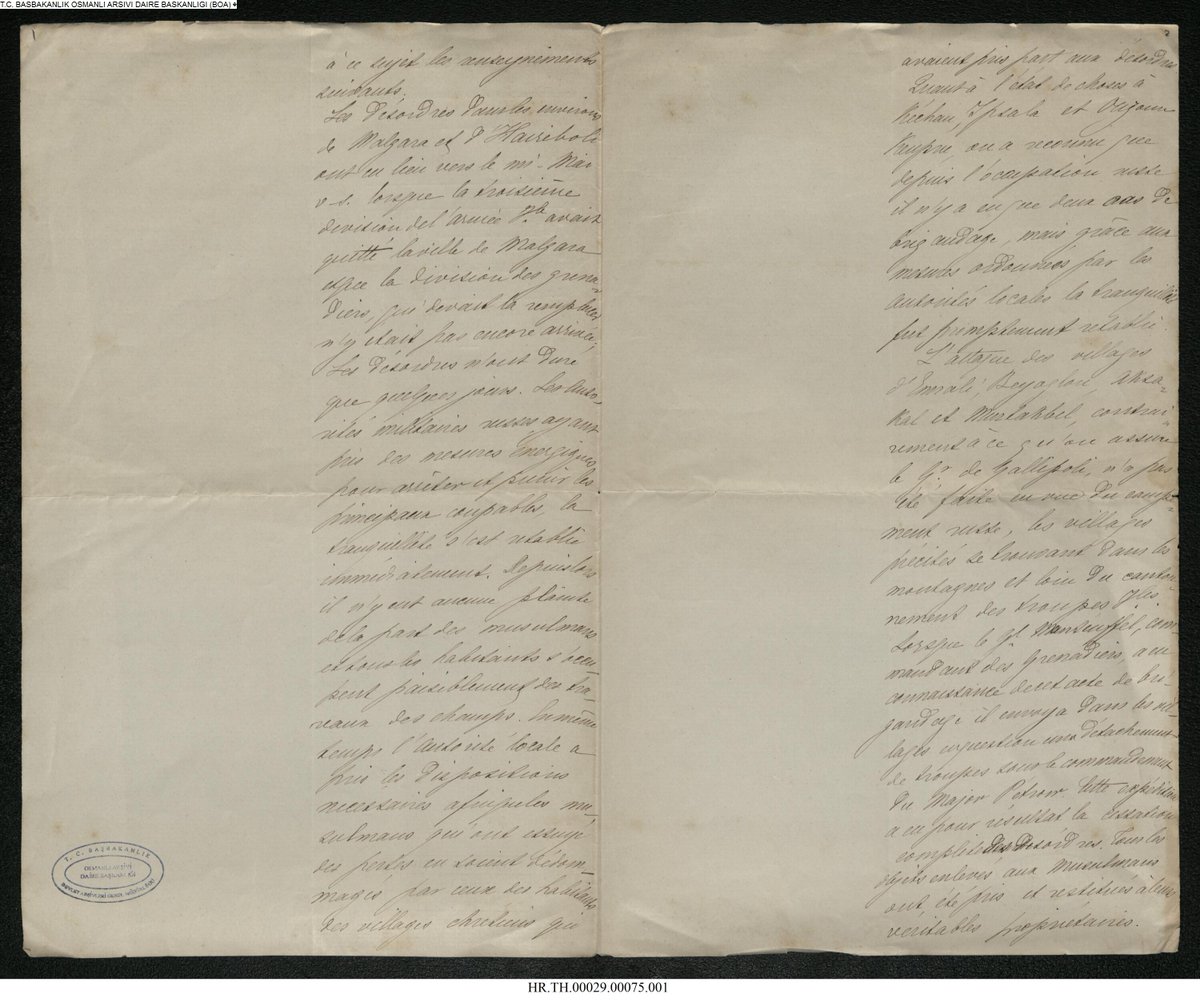 T.C. BASBAKANLIK OSMANLI ARSIVI DAIRE BASKANLIGI (BOA)
1
à ce sujet les renseignements
suivants.
Les désordres dans les environs
de Malgara et d'Haireboli
ont eu lieu vers le mi-Mai
v-s. lorsque la troisième
division de l'armée Ile avait
quitté la ville de Malgara
et que la division des grena-
diers, qui devait la remplacer
n'y était pas encore arrivée;
Les désordres n'ont duré
que quelques jours. Les Auto-
rités militaires russes ayant
pris des mesures énergiques
pour arrêter et punir les
principaux coupables, la
tranquillité s'est rétablie
immédiatement. Depuis lors
il n'y eut aucune plainte
de la part des musulmans
et tous les habitants s'occu-
pent paisiblement des tra-
vaux des champs. En même
temps l'Autorité locale a
pris les dispositions
nécessaires afin que les mu-
sulmans qui ont essuyé
des pertes en soient dédom-
magés par ceux des habitants
des villages chrétiens qui
T. C. BAŞBAKANLIK
OSMANLI ARŞİVİ
DAİRE BAŞKANLIĞI
2
avaient pris part aux désordres
Quant à l'état de choses à
Kéchan, Ipsala et Ouzoun
Keupru on a reconnu que
depuis l'occupation russe
il n'y a eu que deux cas de
brigandage, mais grâce aux
mesures ordonnées par les
autorités locales la tranquillité
fut promptement rétablie.
L'attaque des villages
d'Emrali, Beyoglou, Aksa-
kal et Mustakbel, contrai-
rement à ce qu'en assure
le Gr. de Gallipoli, n'a pas
été faite en vue du campe-
ment russe, les villages
précités se trouvant dans les
montagnes et loin du canton-
nement des troupes Iles.
Lorsque le Gl. Manteuffel, com-
mandant des Grenadiers a eu
connaissance de cet acte de bri-
gandage il envoya dans les vil-
lages en question un détachement
de troupes sous le commandement
du Major Petrow. Cette expédition
a eu pour résultat la cessation
complète des désordres. Tous les
objets enlevés aux Musulmans
ont été pris et restitués à leurs
véritables propriétaires.
HR.TH.00029.00075.001